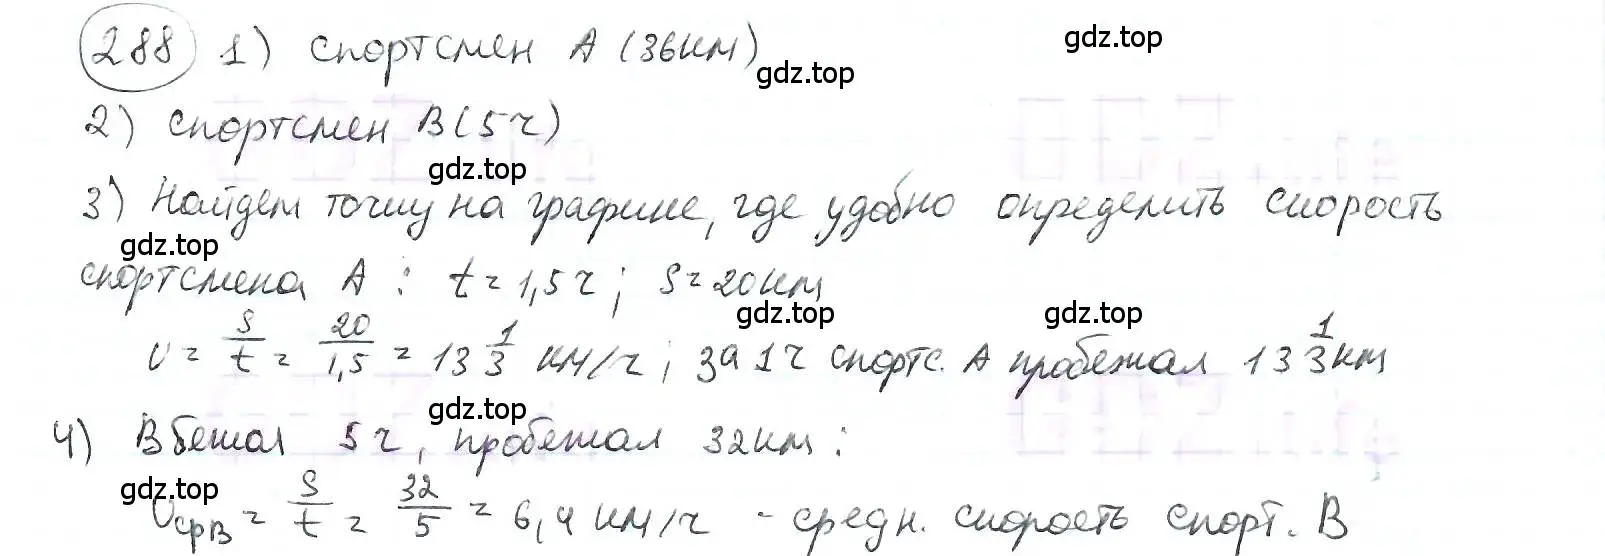 288 1) спортсмен А (36км)
gdz.top
gdz.top
2) спортсмен В (5ч)
gdz.top
3) Найдем точку на графике, где удобно определить скорость
gdz.top
спортсмена А : t = 1,5ч ; S = 20км
gdz.top gdz.top
v = S/t = 20/1,5 = 13 1/3 км/ч ; за 1ч спортс. А пробежал 13 1/3 км
gdz.top
4) В бежал 5ч, пробежал 32км :
gdz.top
vсрВ = S/t = 32/5 = 6,4 км/ч - средн. скорость спорт. В